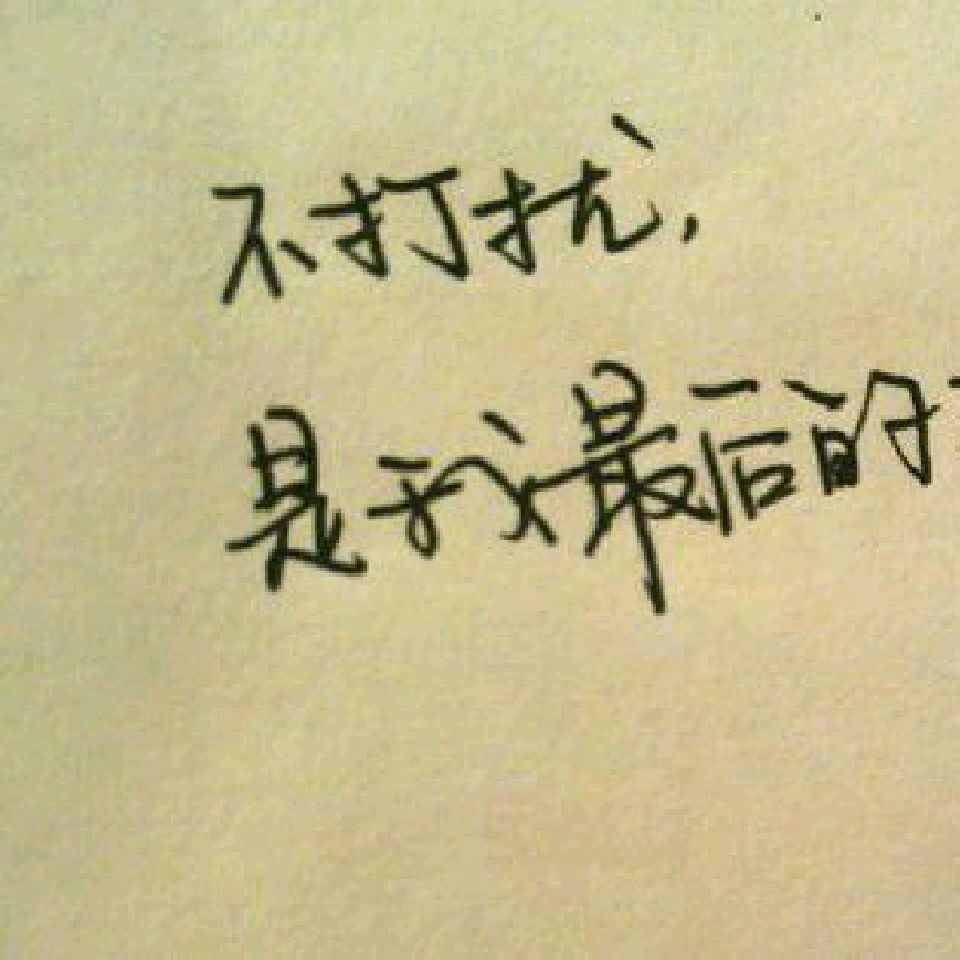 不打扰,
是我最后的